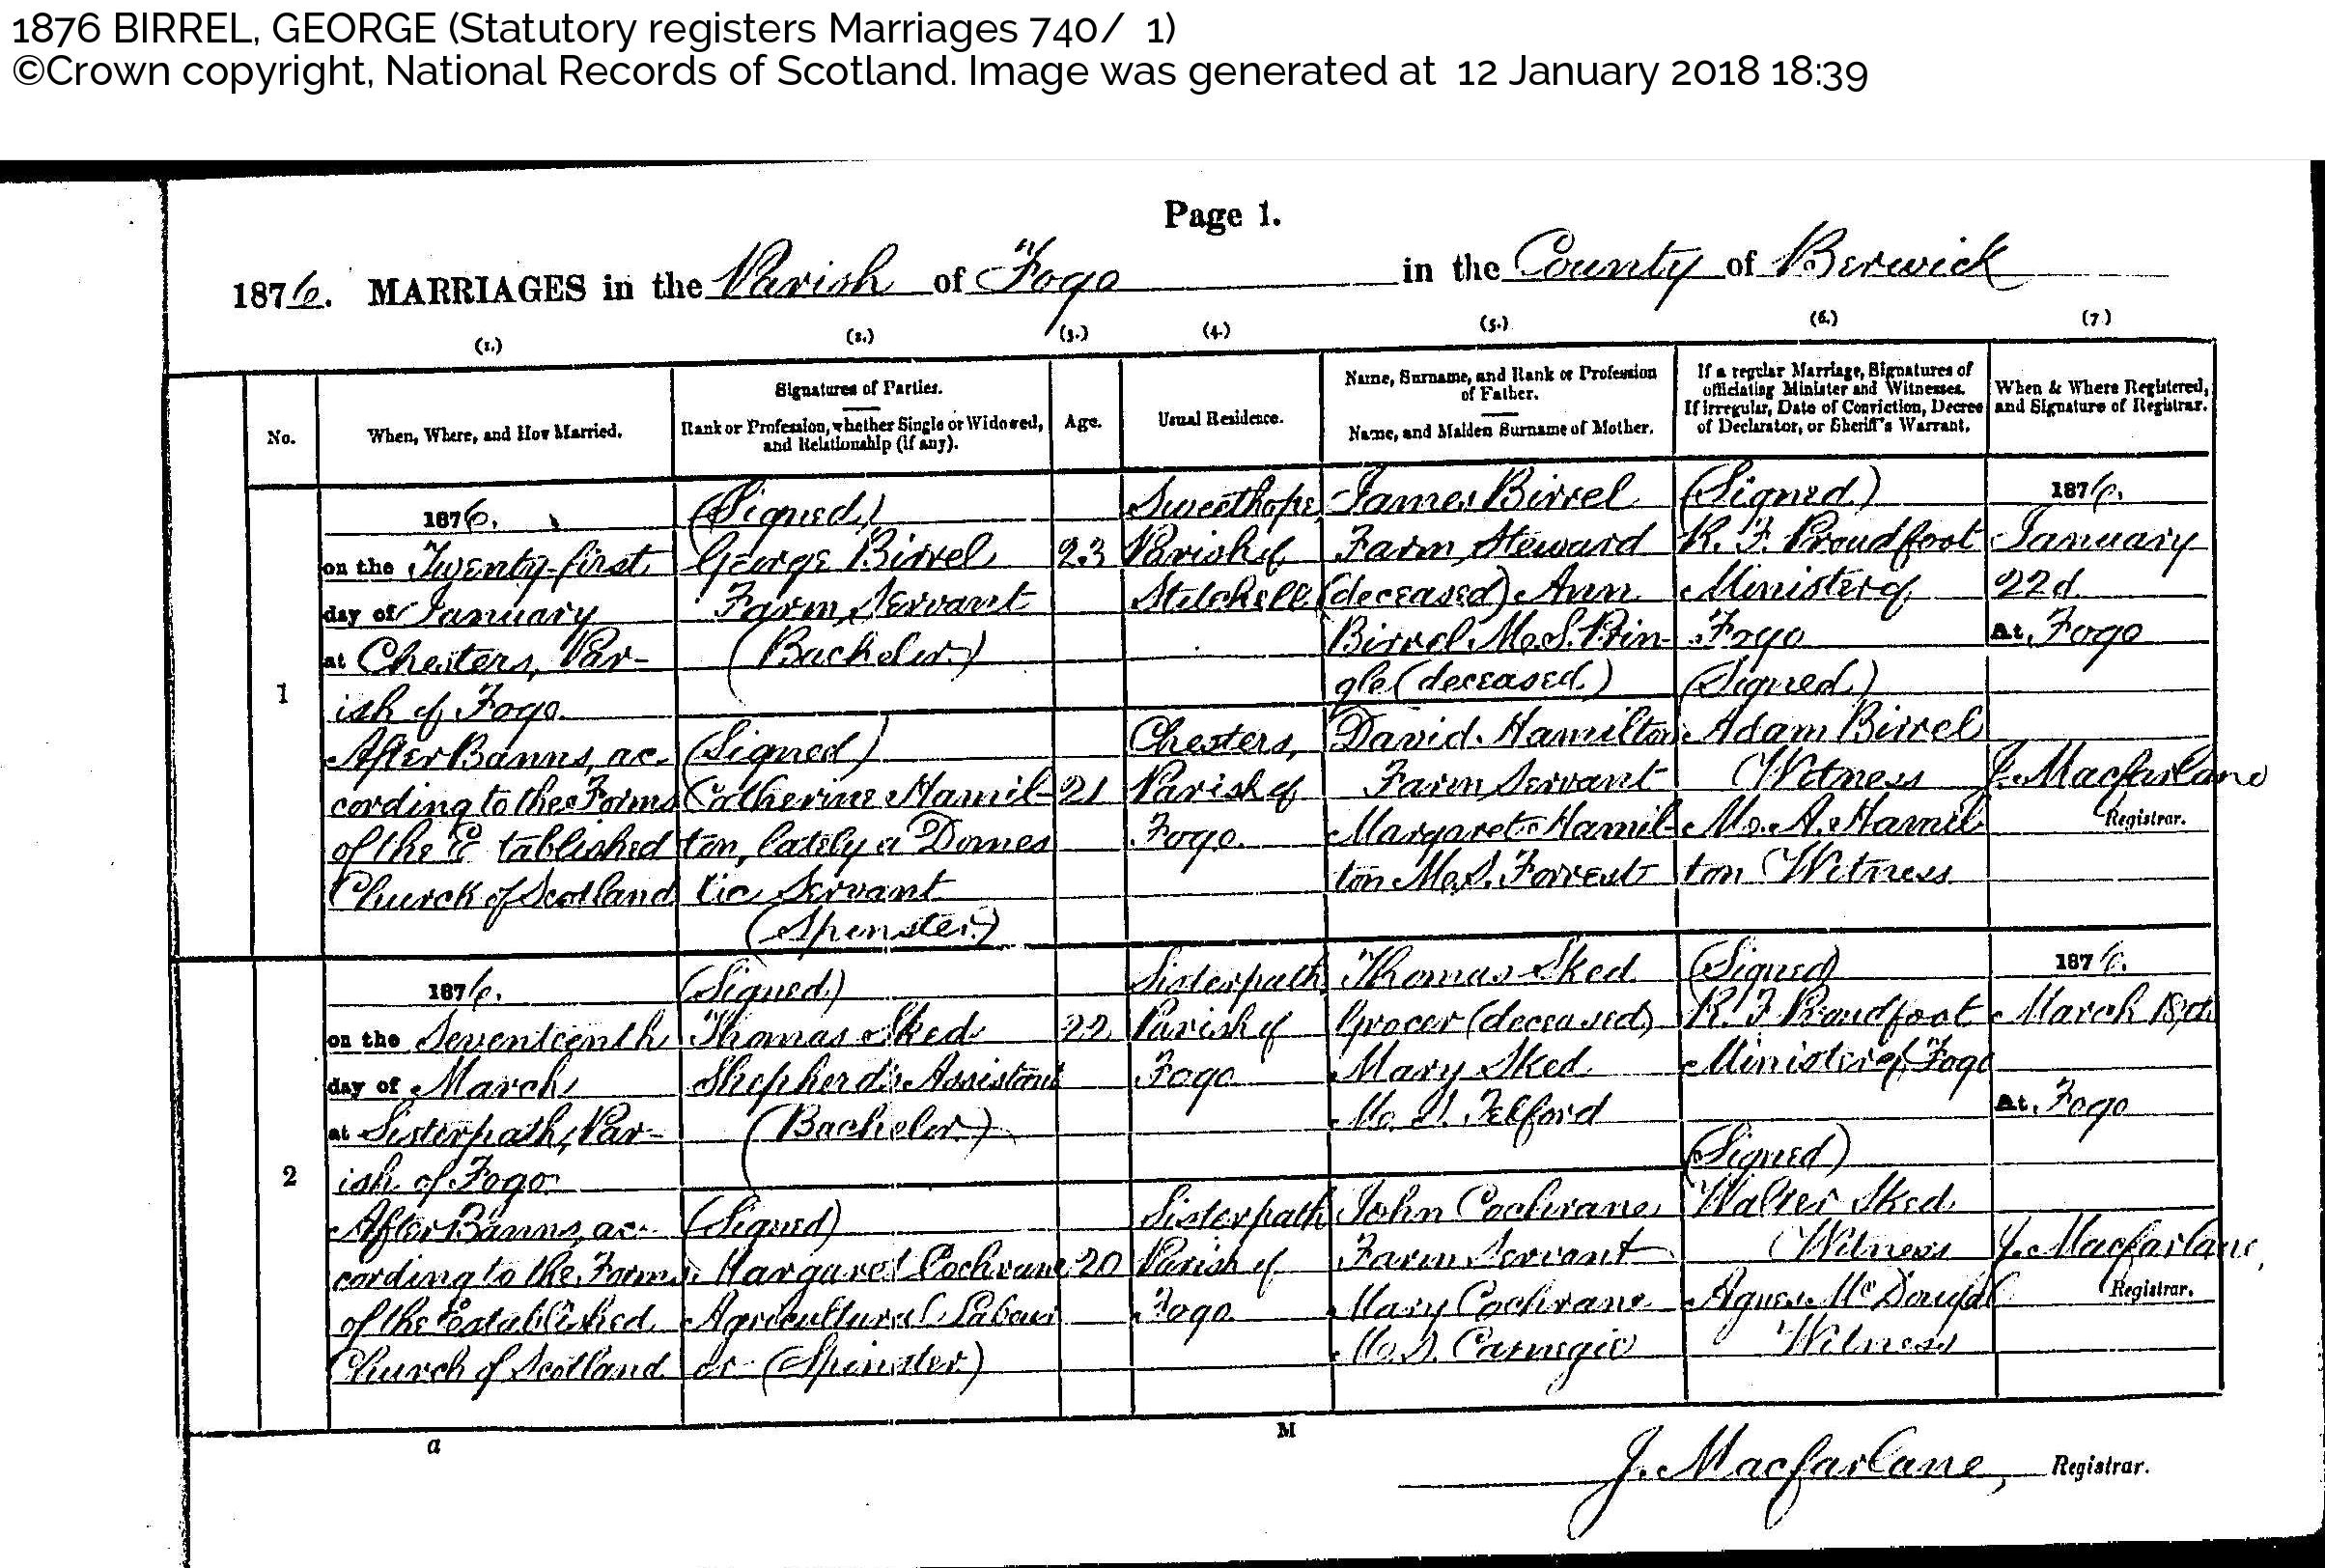 1876 BIRREL, GEORGE (Statutory registers Marriages 740/ 1)
©Crown copyright, National Records of Scotland. Image was generated at 12 January 2018 18:39
Page 1.
1876. MARRIAGES in the Parish of Fogo in the County of Berwick
(1.) (2.) (3.) (4.) (5.) (6.) (7)
No.
When, Where, and How Married.
Signatures of Parties.
Rank or Profession, whether Single or Widowed,
and Relationship (if any).
Age.
Usual Residence.
Name, Surname, and Rank or Profession
of Father.
Name, and Maiden Surname of Mother.
If a regular Marriage, Signatures of
officiating Minister and Witnesses.
If irregular, Date of Conviction, Decree
of Declarator, or Sheriff's Warrant.
When & Where Registered,
and Signature of Registrar.
1
1876.
on the Twenty-first
day of January
at Chesters, Par-
ish of Fogo
After Banns, ac-
cording to the Forms
of the E tablished
Church of Scotland
(Signed)
George Birrel
Farm Servant
(Bachelor)
(Signed)
Catherine Hamil-
ton, lately a Domes
tic Servant
(Spinster)
23
21
Sweethope,
Parish of
Stitchell
Chesters,
Parish of
Fogo
James Birrel
Farm Steward
(deceased) Ann
Birrel M.S. Prin-
gle (deceased)
David Hamilton
Farm Servant
Margaret Hamil-
ton M.S. Forrest
(Signed)
R. F. Proudfoot
Minister of
Fogo
(Signed)
Adam Birrel
Witness
M. A. Hamil
ton Witness
1876.
January
22d
At, Fogo
J. Macfarlane
Registrar.
2
1876.
on the Seventeenth
day of March
at Sisterpath, Par-
ish of Fogo
After Banns, ac-
cording to the Forms
of the Established
Church of Scotland
(Signed)
Thomas Sked
Shepherd's Assistant
(Bachelor)
(Signed)
Margaret Cochrane
Agricultural Labour
er (Spinster)
22
20
Sisterpath
Parish of
Fogo
Sisterpath
Parish of
Fogo
Thomas Sked
Grocer (deceased)
Mary Sked
M.S. Telford
John Cochrane
Farm Servant
Mary Cochrane
M.S. Carnegie
(Signed)
R. F. Proudfoot
Minister of Fogo
(Signed)
Walter Sked
Witness
Agnes McDougal
Witness
1876.
March 18th
At, Fogo
J. Macfarlane,
Registrar.
a M
J. Macfarlane, Registrar.